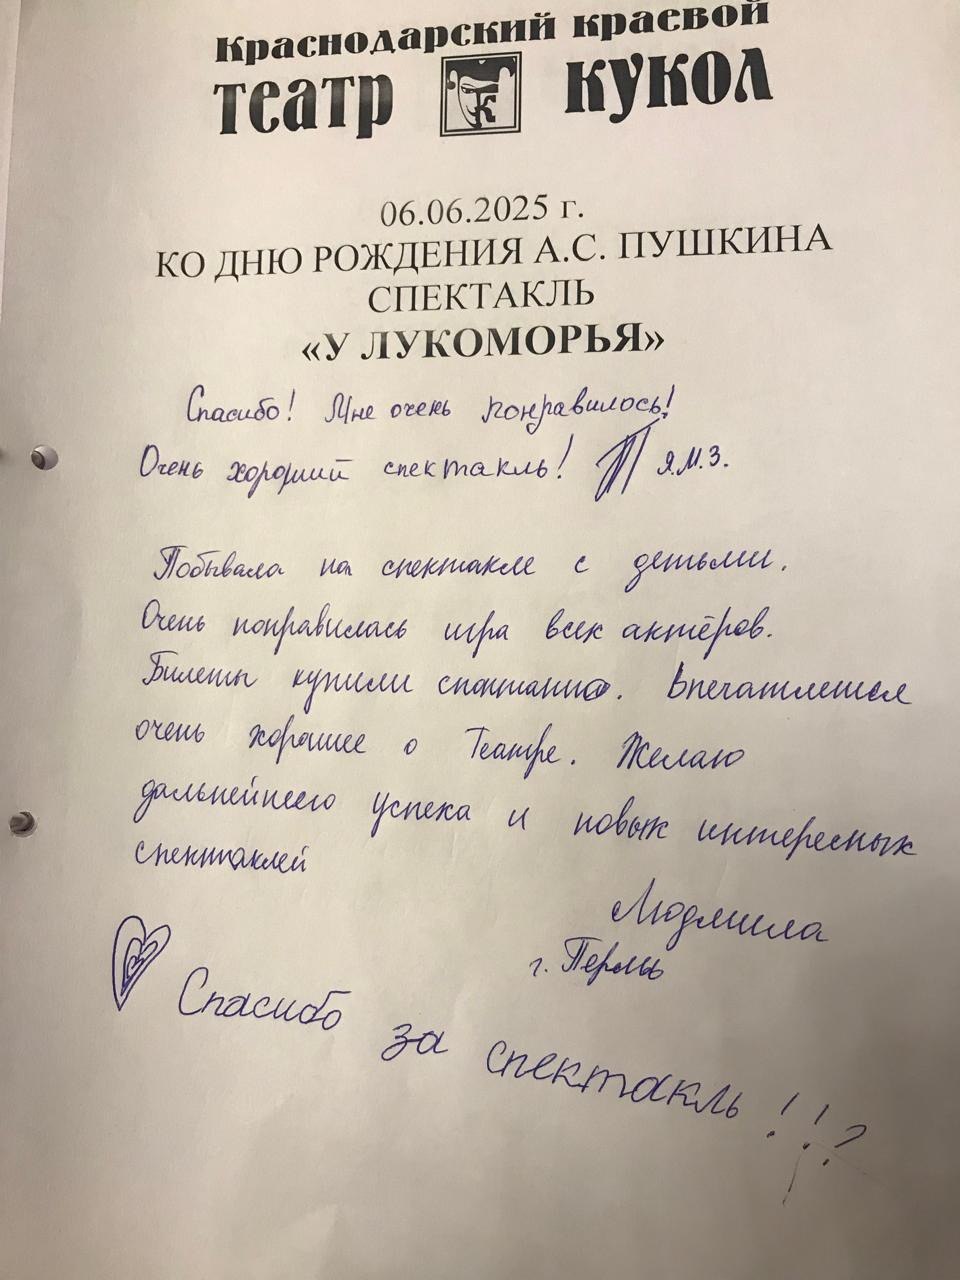 Краснодарский краевой
театр кукол
06.06.2025 г.
КО ДНЮ РОЖДЕНИЯ А.С. ПУШКИНА
СПЕКТАКЛЬ
«У ЛУКОМОРЬЯ»
Спасибо! Мне очень понравилось!
Очень хороший спектакль! Я.М.З.
Побывала на спектакле с детьми.
Очень понравилась игра всех актёров.
Билеты купили спонтанно. Впечатления
очень хорошее о Театре. Желаю
дальнейшего успеха и новых интересных
спектаклей
Людмила
г. Пермь
Спасибо за спектакль!!?